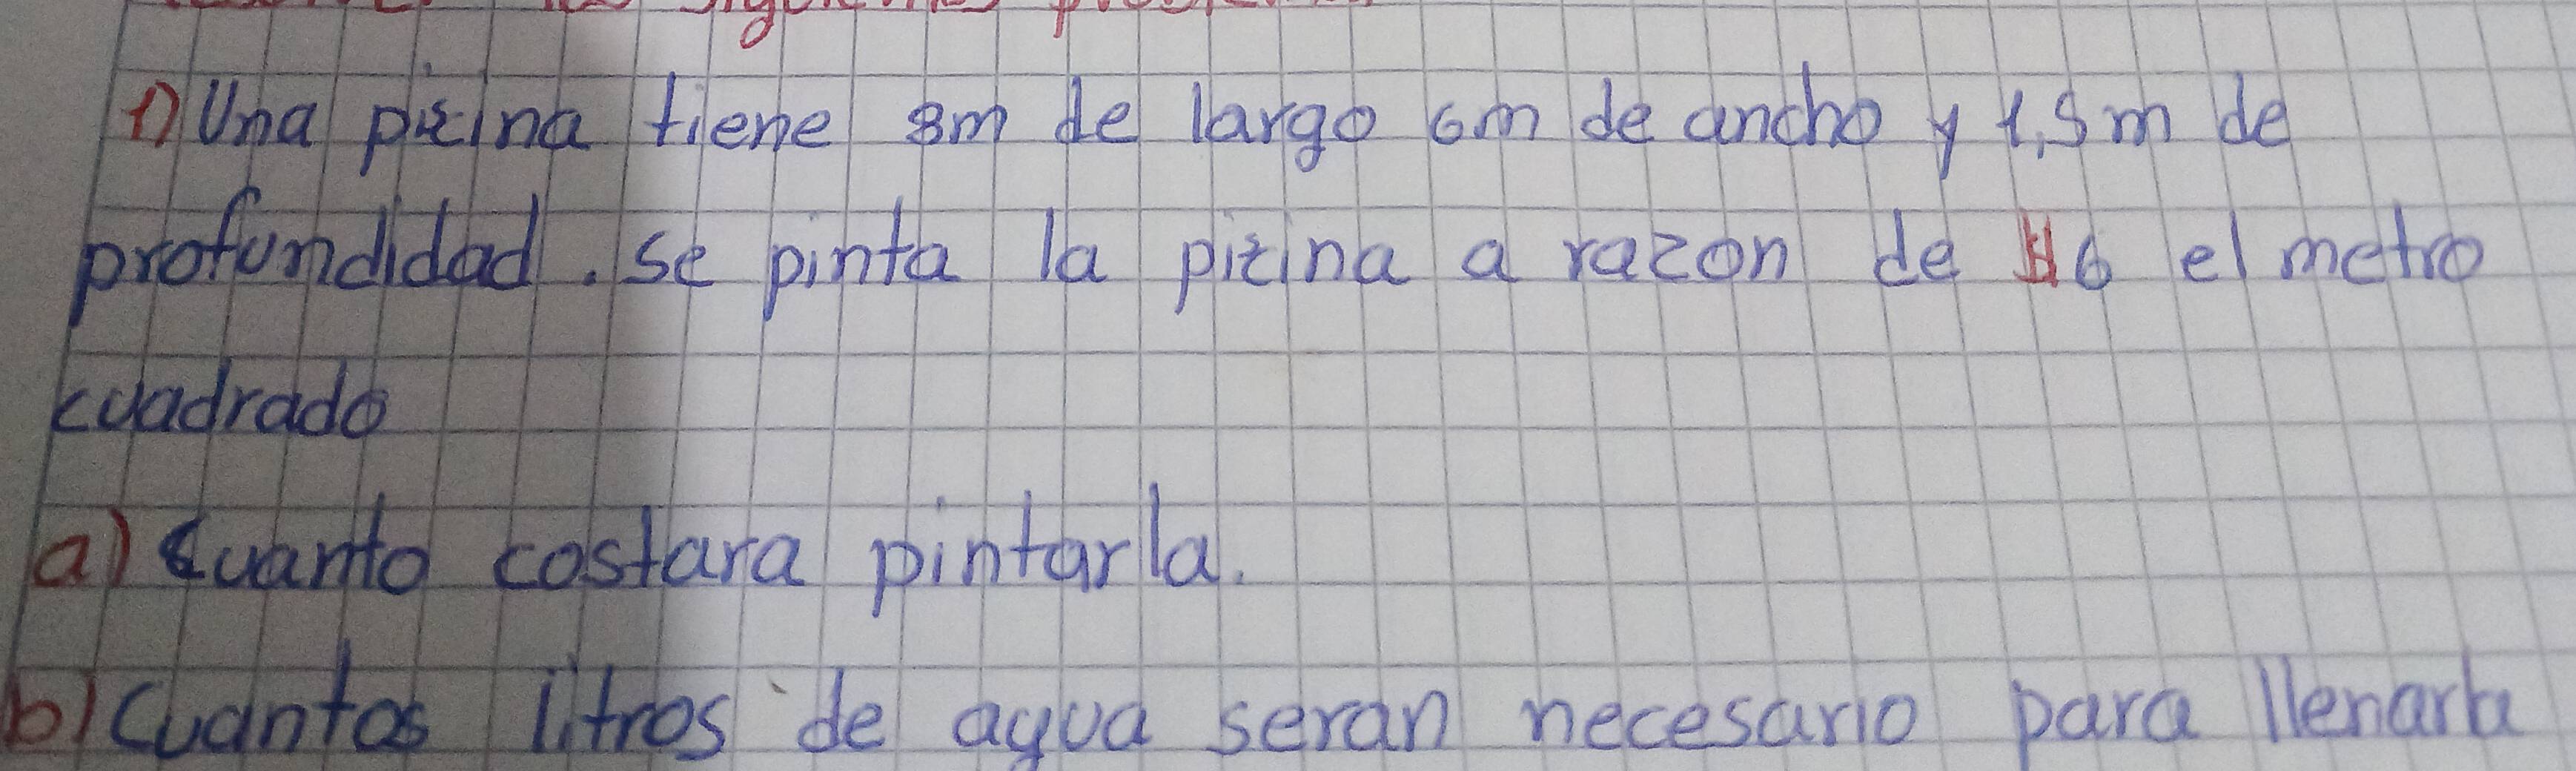 1) Una picina tiene 8m de largo 6m de ancho y 1,5m de
profundidad. se pinta la picina a razon de $6 el metro
cuadrado
a) Cuanto costara pintarla.
b) Cuantos litros de agua seran necesario para llenarla